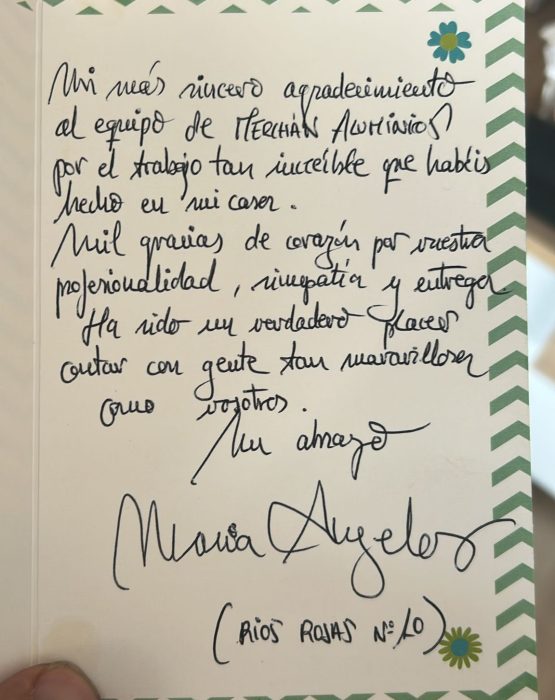 Mi más sincero agradecimiento
al equipo de MERCHÁN ALUMINIOS
por el trabajo tan increíble que habéis
hecho en mi casa.
Mil gracias de corazón por vuestra
profesionalidad, simpatía y entrega.
Ha sido un verdadero placer
contar con gente tan maravillosa
como vosotros.
Un abrazo
María Ángeles
(RIOS ROSAS Nº 10)